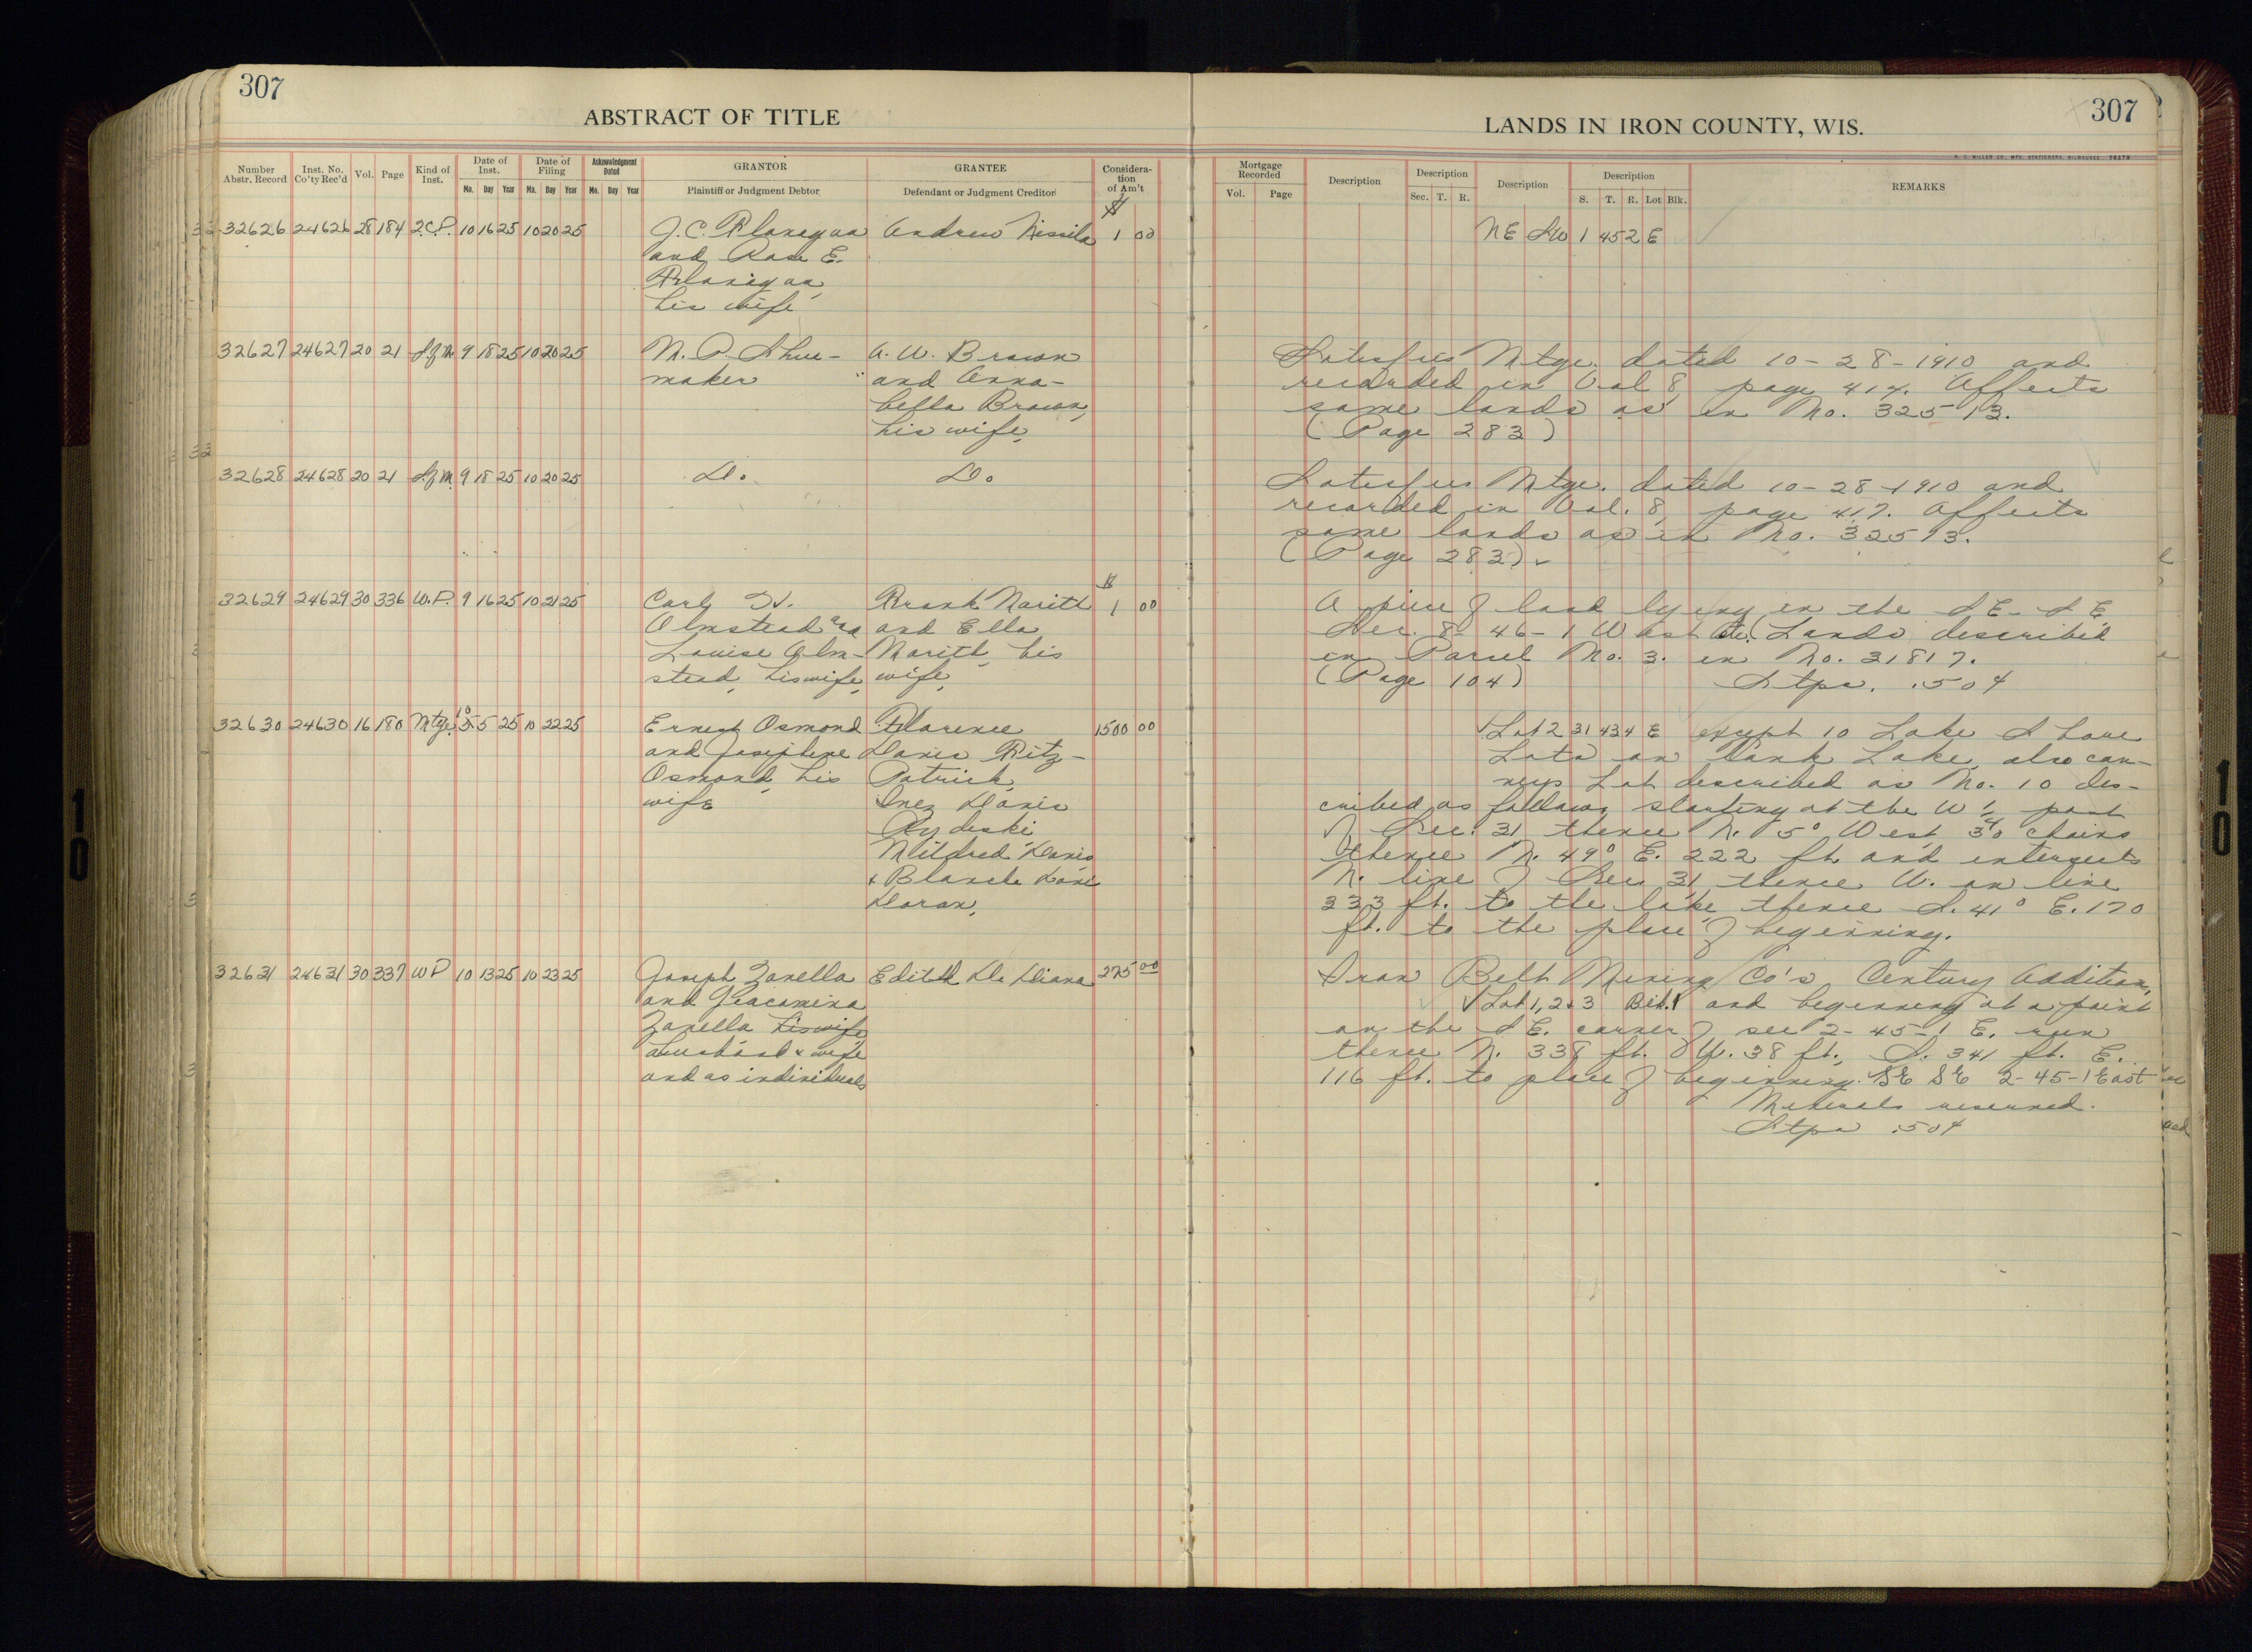 307
307
ABSTRACT OF TITLE
LANDS IN IRON COUNTY, WIS.
Number Abstr. Record
Inst. No. Co'ty Rec'd
Vol.
Page
Kind of Inst.
Date of Inst.
Mo. Day Year
Date of Filing
Mo. Day Year
Acknowledgment Dated
Mo. Day Year
GRANTOR
Plaintiff or Judgment Debtor
GRANTEE
Defendant or Judgment Creditor
Considera-
tion
of Am't
Mortgage Recorded
Vol. Page
Description
Description
Sec. T. R.
Description
Description
S. T. R. Lot Blk.
REMARKS
32626 24626 28 184 10 16 25 10 20 25 J.C. Flanegan Andrew Nissila $ 1 00 NE SW 1 45 2 E
and Rose E.
Flanigan,
his wife
32627 24627 20 21 9 18 25 10 20 25 A. W. Brown Satisfies Mtge. dated 10-28-1910 and
maker and Anna- recorded in Vol 8, page 417. Affects
bella Brown, same lands as in No. 32513.
his wife, (Page 283)
32628 24628 20 21 9 18 25 10 20 25 Do. Do. Satisfies Mtge. dated 10-28-1910 and
recorded in Vol. 8, page 417. Affects
same lands as in No. 32513.
(Page 283)
32629 24629 30 336 W.D. 9 16 25 10 21 25 Carl Frank $ 1 00 A piece of land lying in the SE-SE
Olmstead and and Ella Sec. 8-46-1 West Lands described
Louise Olm- his in Parcel No. 3. in No. 31817.
stead, his wife, wife, (Page 104)
Stps. .50¢
32630 24630 16 180 Mtge. 10 5 25 10 22 25 Ernest Osmond Florence 1500 00 Lot 2 31 43 4 E except 10 Lake Shore
and Josephine Davis Fitz- Lots on Lake, also con-
Osmond, his Patrick, veys Lot described as No. 10 des-
wife Inez Davis cribed as follows, starting at the W 1/4 post
of Sec. 31, thence N. 5° West 30 chains
Mildred Davis thence N. 49° E. 222 ft. and intersects
& Blanch Davis N. line of Sec 31, thence W. on line
Doran, 333 ft. to the lake, thence S. 41° E. 170
ft. to the place of beginning.
32631 24631 30 337 WD 10 13 25 10 23 25 Joseph Zanella Edith De Diana 275 00 Iron Belt Mining Co's Century Addition,
and Giacomina Lot 1, 2 & 3 Blk. 1 and beginning at a point
Zanella his wife, on the SE. corner of sec 2-45-1 E. run
husband & wife thence N. 338 ft. W. 38 ft., S. 341 ft. E.
and as individuals 116 ft. to place of beginning. SE SE 2-45-1 East
Minerals reserved.
Stps .50¢